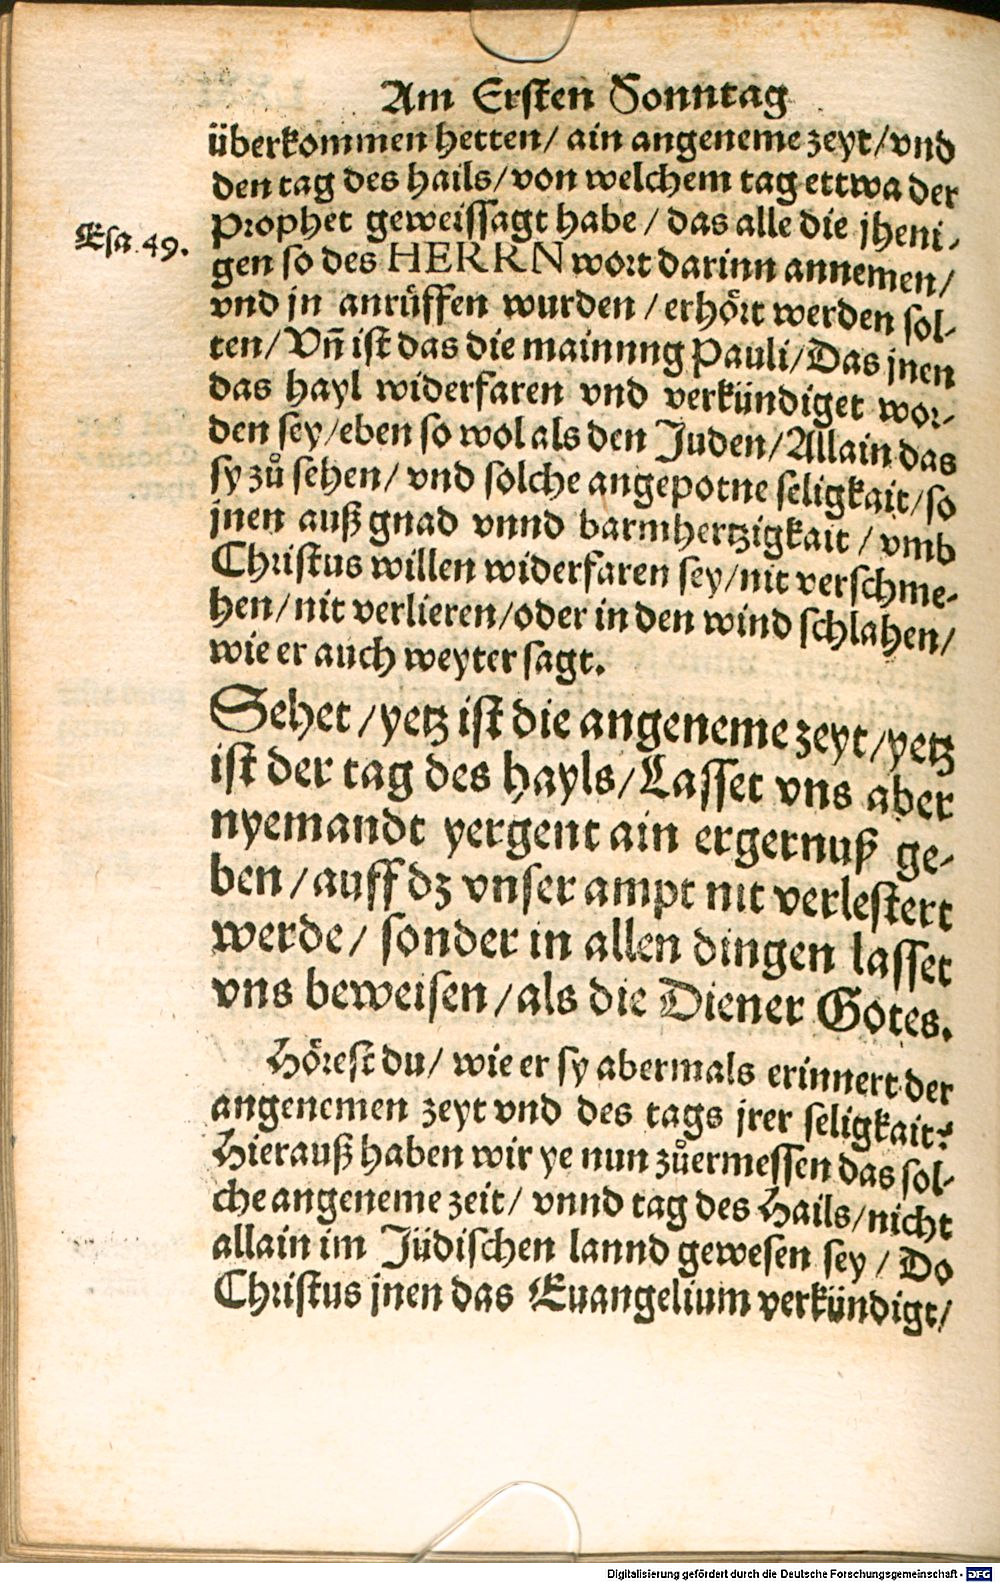 Am Ersten Sonntag
überkommen hetten/ ain angeneme zeyt/vnd
den tag des hails/von welchem tag ettwa der
Prophet geweissagt habe/ das alle die jheni-
Esa. 49.
gen so des HERRN wort darinn annemen/
vnd jn anrůffen wurden/ erhört werden sol-
ten/ Vñ ist das die mainung Pauli/Das jnen
das hayl widerfaren vnd verkündiget wor-
den sey/eben so wol als den Juden/Allain das
sy zů sehen/ vnd solche angepotne seligkait/so
jnen auß gnad vnnd barmhertzigkait/ vmb
Christus willen widerfaren sey/nit verschme-
hen/nit verlieren/oder in den wind schlahen/
wie er auch weyter sagt.
Sehet/yetz ist die angeneme zeyt/yetz
ist der tag des hayls/Lasset vns aber
nyemandt yergent ain ergernuß ge-
ben/auff dz vnser ampt nit verlestert
werde/ sonder in allen dingen lasset
vns beweisen/als die Diener Gotes.
Hörest du/ wie er sy abermals erinnert der
angenemen zeyt vnd des tags jrer seligkait?
Hierauß haben wir ye nun zůermessen das sol-
che angeneme zeit/ vnnd tag des Hails/nicht
allain im Jüdischen lannd gewesen sey/ Do
Christus jnen das Euangelium verkündigt/
Digitalisierung gefördert durch die Deutsche Forschungsgemeinschaft - DFG